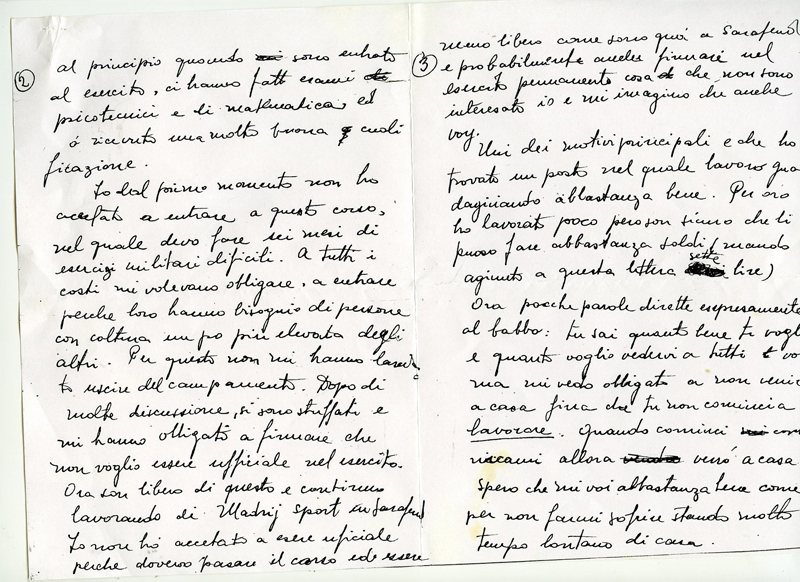 ②
al principio quando sono entrato
al esercito, ci hanno fatt esami
psicotecnici e di matematica, ed
ó ricevuto una molto buona cuoli
ficazione.
Io dal primo momento non ho
accetato a entrare a questo corso,
nel quale devo fare sei mesi di
esercizi militari dificili. A tutti i
costi mi volevano obligare, a entrare
perche loro hanno bisognio di persone
con coltura un po piu elevata degli
altri. Per questo non mi hanno lascia
to uscire del campamento. Dopo di
molte discussione, si sono stuffati e
mi hanno obligato a firmare che
non voglio essere ufficiale nel esercito.
Ora son libero di questo e continuo
lavorando di Madrij sport in Sarafend
Io non ho accetato a essere uficiale
perche dovevo pasare il corso ed essere
③
meno libero come sono quá a Sarafend
e probabilmente anche firmare nel
esercito permanente cosa che non sono
interesato io e mi imagino che anche
voy.
Uni dei motivi principali e che ho
trovato un posto nel quale lavoro gua
dagniando abbastanza bene. Per ora
ho lavorato poco pero son sicuro che li
posso fare abbastanza soldi (mando
agiunto a questa lettera sette lire)
Ora poche parole dirette espresamente
al babbo: tu sai quanto bene ti vogl
e quanto voglio vedervi a tutti vo
ma mi vedo obligato a non venire
a casa fina che tu non comincia
lavorare. Quando cominci
allora verró a casa
Spero che mi voi abbastanza bene come
per non farmi sofrire stando molto
tempo lontano di casa.